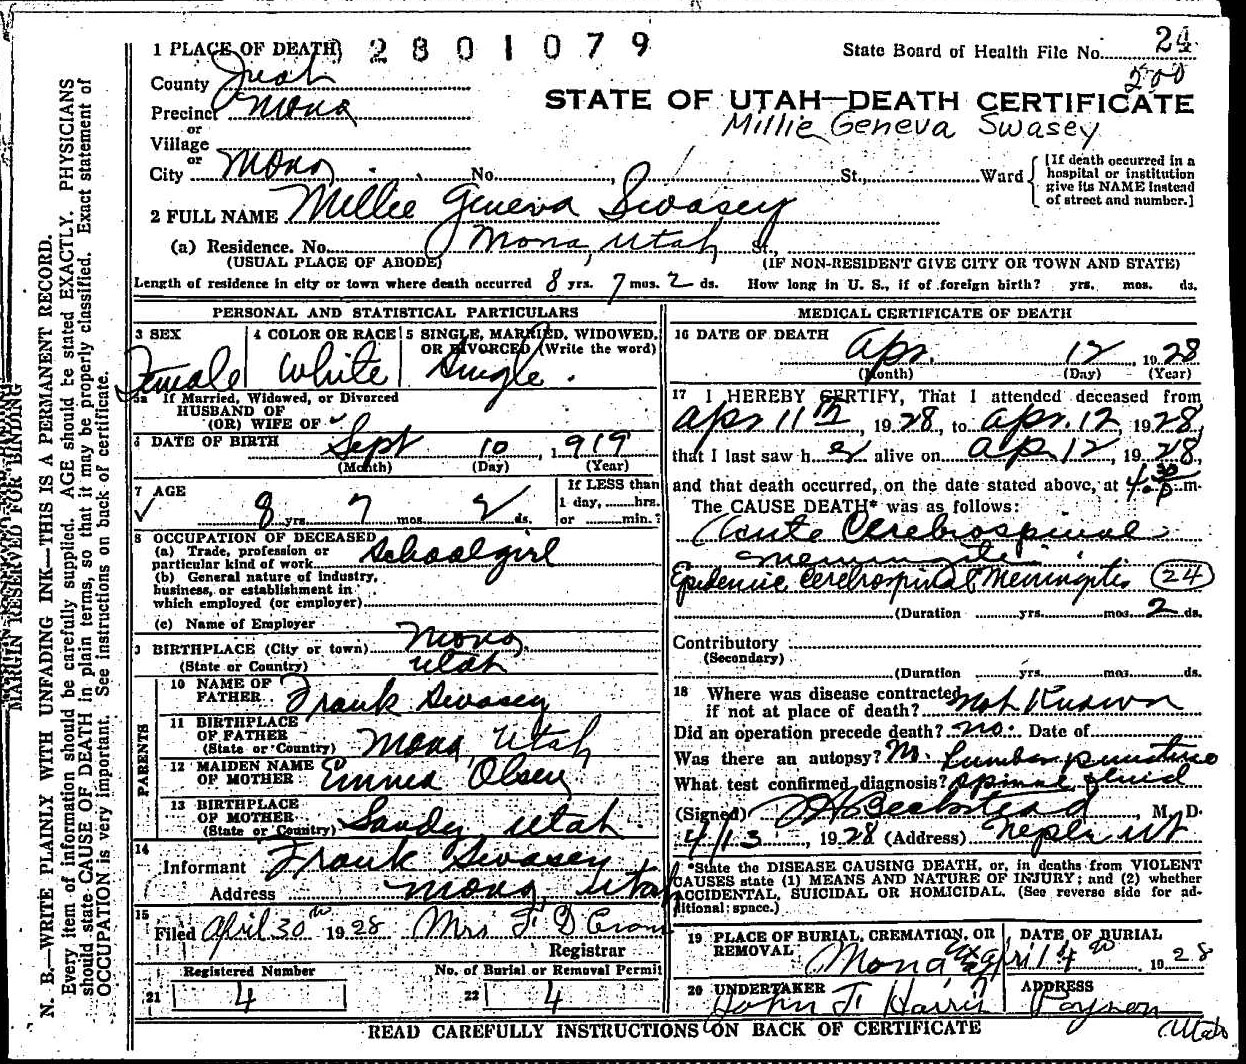 1 PLACE OF DEATH 2801079 State Board of Health File No. 24
County Juab 200
Precinct Mona STATE OF UTAH—DEATH CERTIFICATE
or Millie Geneva Swasey
Village
or
City Mona No. St., Ward [If death occurred in a hospital or institution give its NAME instead of street and number.]
2 FULL NAME Millie Geneva Swasey
(a) Residence. No. Mona, Utah St.,
(USUAL PLACE OF ABODE) (IF NON-RESIDENT GIVE CITY OR TOWN AND STATE)
Length of residence in city or town where death occurred 8 yrs. 7 mos. 2 ds. How long in U. S., if of foreign birth? yrs. mos. ds.
PERSONAL AND STATISTICAL PARTICULARS
3 SEX 4 COLOR OR RACE 5 SINGLE, MARRIED, WIDOWED,
OR DIVORCED (Write the word)
Female White Single.
5a If Married, Widowed, or Divorced
HUSBAND OF
(OR) WIFE OF
6 DATE OF BIRTH Sept 10, 1919
(Month) (Day) (Year)
7 AGE If LESS than
1 day, hrs.
8 yrs. 7 mos. 2 ds. or min.?
8 OCCUPATION OF DECEASED
(a) Trade, profession or
particular kind of work School girl
(b) General nature of industry,
business, or establishment in
which employed (or employer)
(c) Name of Employer
9 BIRTHPLACE (City or town) Mona,
(State or Country) Utah
PARENTS
10 NAME OF
FATHER Frank Swasey
11 BIRTHPLACE
OF FATHER
(State or Country) Mona, Utah
12 MAIDEN NAME
OF MOTHER Emma Olsen
13 BIRTHPLACE
OF MOTHER
(State or Country) Sandy, Utah.
14
Informant Frank Swasey
Address Mona, Utah
15
Filed April 30th 1928 Mrs F D
Registrar
Registered Number No. of Burial or Removal Permit
21 4 22 4
MEDICAL CERTIFICATE OF DEATH
16 DATE OF DEATH
Apr. 12, 1928
(Month) (Day) (Year)
17 I HEREBY CERTIFY, That I attended deceased from
Apr 11th, 1928, to Apr. 12, 1928,
that I last saw her alive on Apr 12, 1928,
and that death occurred, on the date stated above, at 4:30 p.m.
The CAUSE DEATH* was as follows:
Acute Cerebrospinal
meningitis
Epidemic Cerebrospinal Meningitis 24
(Duration yrs. mos. 2 ds.
Contributory
(Secondary)
(Duration yrs. mos. ds.
18 Where was disease contracted
if not at place of death? Not Known
Did an operation precede death? No. Date of
Was there an autopsy? No. Lumbar puncture
What test confirmed diagnosis? Spinal fluid
(Signed) Beckstead, M. D.
4/13, 1928 (Address) Nephi Ut
*State the DISEASE CAUSING DEATH, or, in deaths from VIOLENT
CAUSES state (1) MEANS AND NATURE OF INJURY; and (2) whether
ACCIDENTAL, SUICIDAL OR HOMICIDAL. (See reverse side for ad-
ditional space.)
19 PLACE OF BURIAL, CREMATION, OR DATE OF BURIAL
REMOVAL
Mona Ut April 14th 1928
20 UNDERTAKER ADDRESS
John T. Harris Payson
Utah
READ CAREFULLY INSTRUCTIONS ON BACK OF CERTIFICATE
MARGIN RESERVED FOR BINDING
N. B.—WRITE PLAINLY WITH UNFADING INK—THIS IS A PERMANENT RECORD.
Every item of information should be carefully supplied. AGE should be stated EXACTLY. PHYSICIANS
should state CAUSE OF DEATH in plain terms, so that it may be properly classified. Exact statement of
OCCUPATION is very important. See instructions on back of certificate.